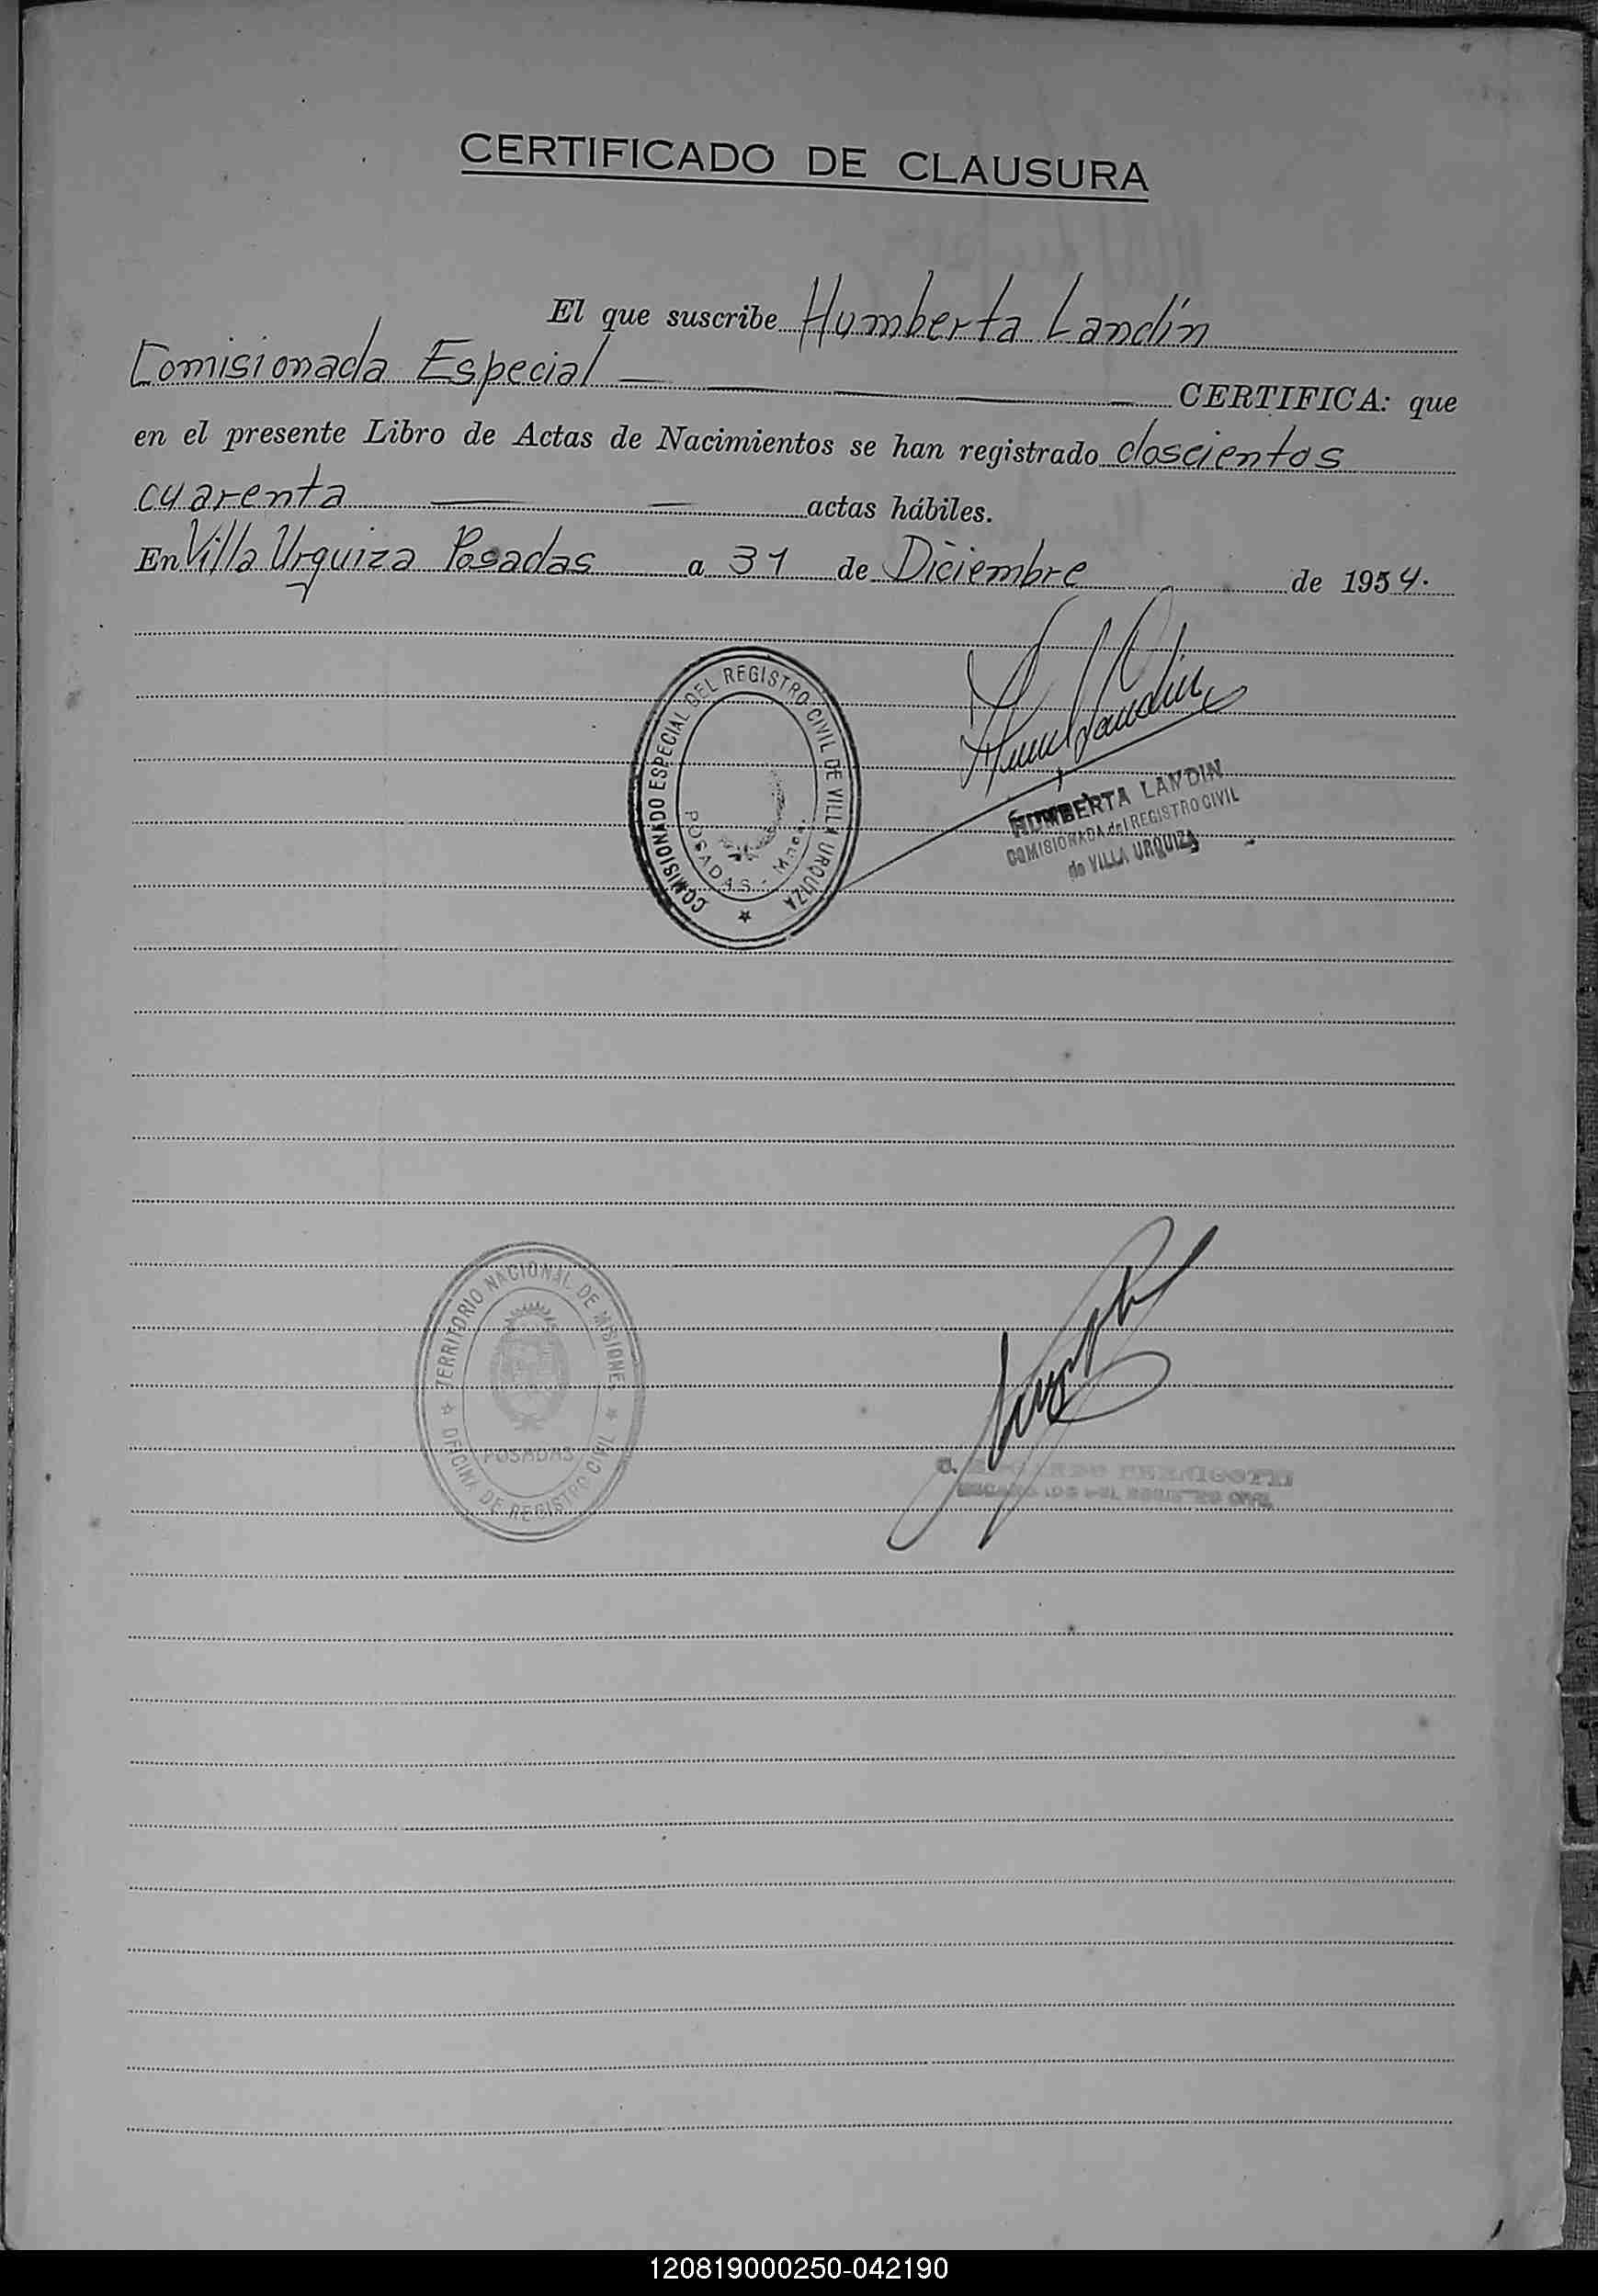 CERTIFICADO DE CLAUSURA
El que suscribe Humberta Landín
Comisionada Especial CERTIFICA: que
en el presente Libro de Actas de Nacimientos se han registrado doscientos
cuarenta actas hábiles.
En Villa Urquiza Posadas a 31 de Diciembre de 1954.
COMISIONADO ESPECIAL DEL REGISTRO CIVIL DE VILLA URQUIZA
POSADAS - Mnes.
Hum Landin
HUMBERTA LANDIN
COMISIONADA del REGISTRO CIVIL
de VILLA URQUIZA
TERRITORIO NACIONAL DE MISIONES
OFICINA DE REGISTRO CIVIL
POSADAS
120819000250-042190